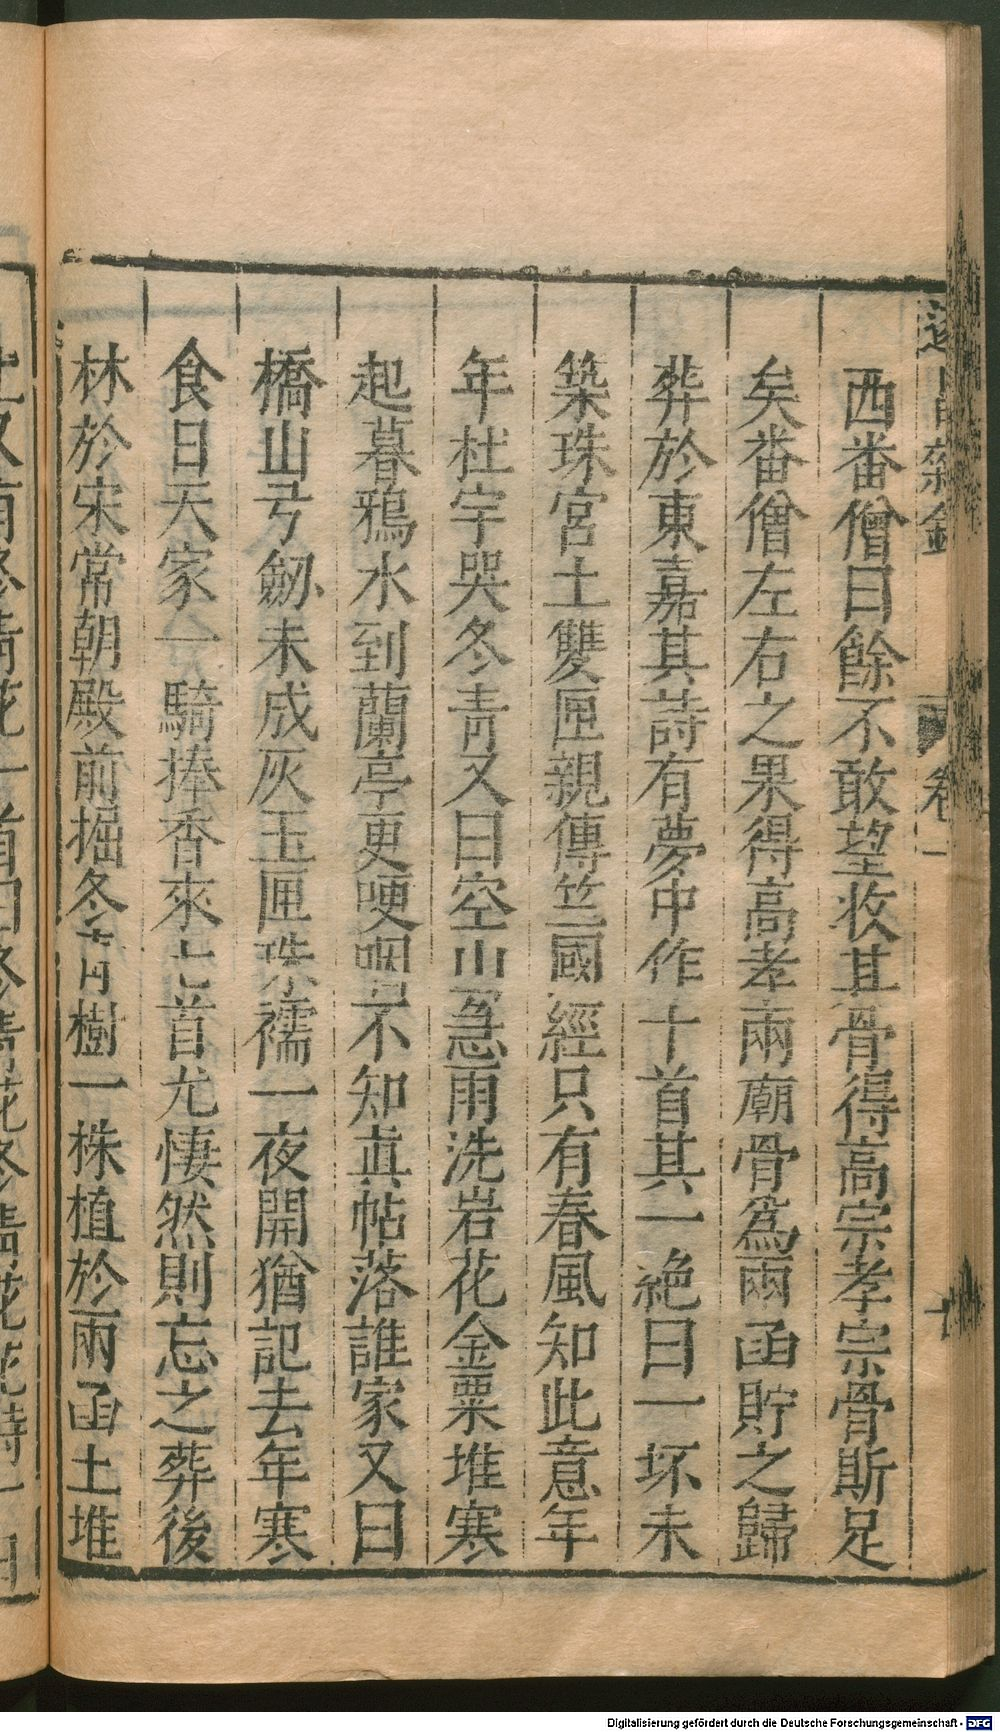 西番僧曰餘不敢望收其骨得高宗孝宗骨斯足
矣番僧左右之果得高孝兩廟骨為兩函貯之歸
葬於東嘉其詩有夢中作十首其一絶曰一坏未
築珠宮土雙匣親傳竺國經只有春風知此意年
年杜宇哭冬青又曰空山急雨洗岩花金粟堆寒
起暮鴉水到蘭亭更哽咽不知眞帖落誰家又曰
橋山弓劒未成灰玉匣珠襦一夜開猶記去年寒
食日天家一騎捧香來七首尤悽然則忘之葬後
林於宋常朝殿前掘冬青樹一株植於兩函土堆
卷一
Digitalisierung gefördert durch die Deutsche Forschungsgemeinschaft - DFG